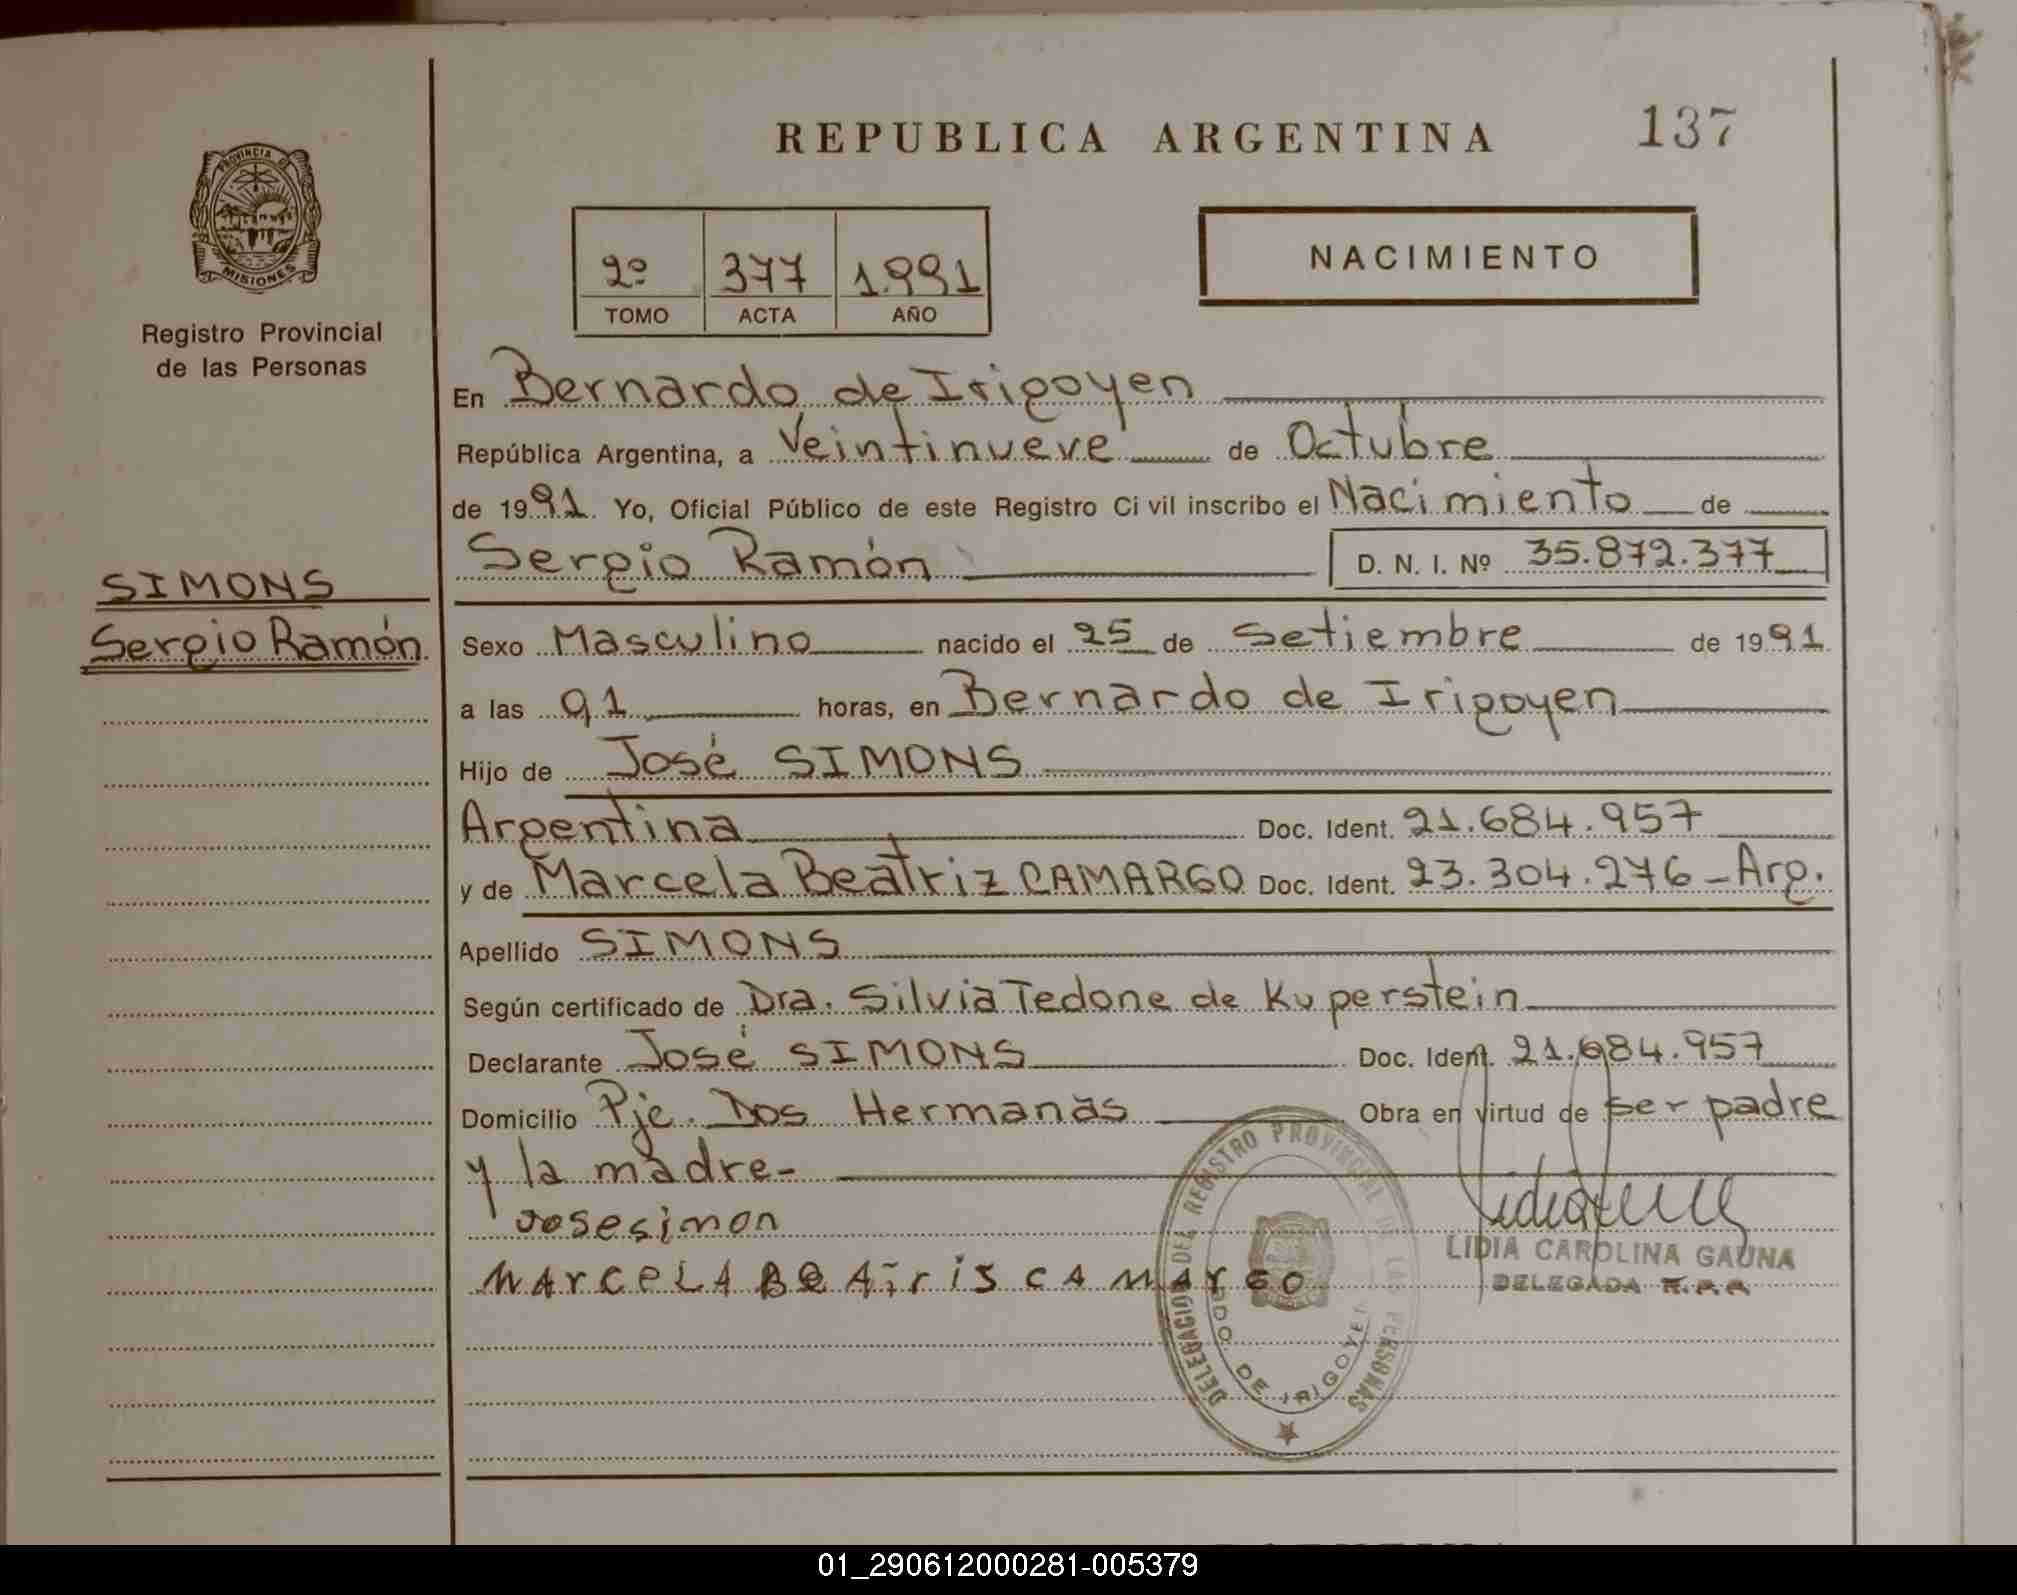 REPUBLICA ARGENTINA
137
PROVINCIA DE
MISIONES
Registro Provincial
de las Personas
2º 377 1.991
TOMO ACTA AÑO
NACIMIENTO
En Bernardo de Irigoyen
República Argentina, a Veintinueve de Octubre
de 1991. Yo, Oficial Público de este Registro Ci vil inscribo el Nacimiento de
Sergio Ramón D. N. I. Nº 35.872.377
SIMONS
Sergio Ramón
Sexo Masculino nacido el 25 de Setiembre de 1991
a las 21 horas, en Bernardo de Irigoyen
Hijo de José SIMONS
Argentina Doc. Ident. 21.684.957
y de Marcela Beatriz CAMARGO Doc. Ident. 23.304.276 - Arg.
Apellido SIMONS
Según certificado de Dra. Silvia Tedone de Kuperstein
Declarante José SIMONS Doc. Ident. 21.684.957
Domicilio Pje. Dos Hermanas Obra en virtud de ser padre
y la madre-
Josesimon
MArceLA BeAtris CAMArGO
LIDIA CAROLINA GAUNA
DELEGADA R.P.P.
DELEGACION DEL REGISTRO PROVINCIAL DE LAS PERSONAS
DE IRIGOYEN
01_290612000281-005379